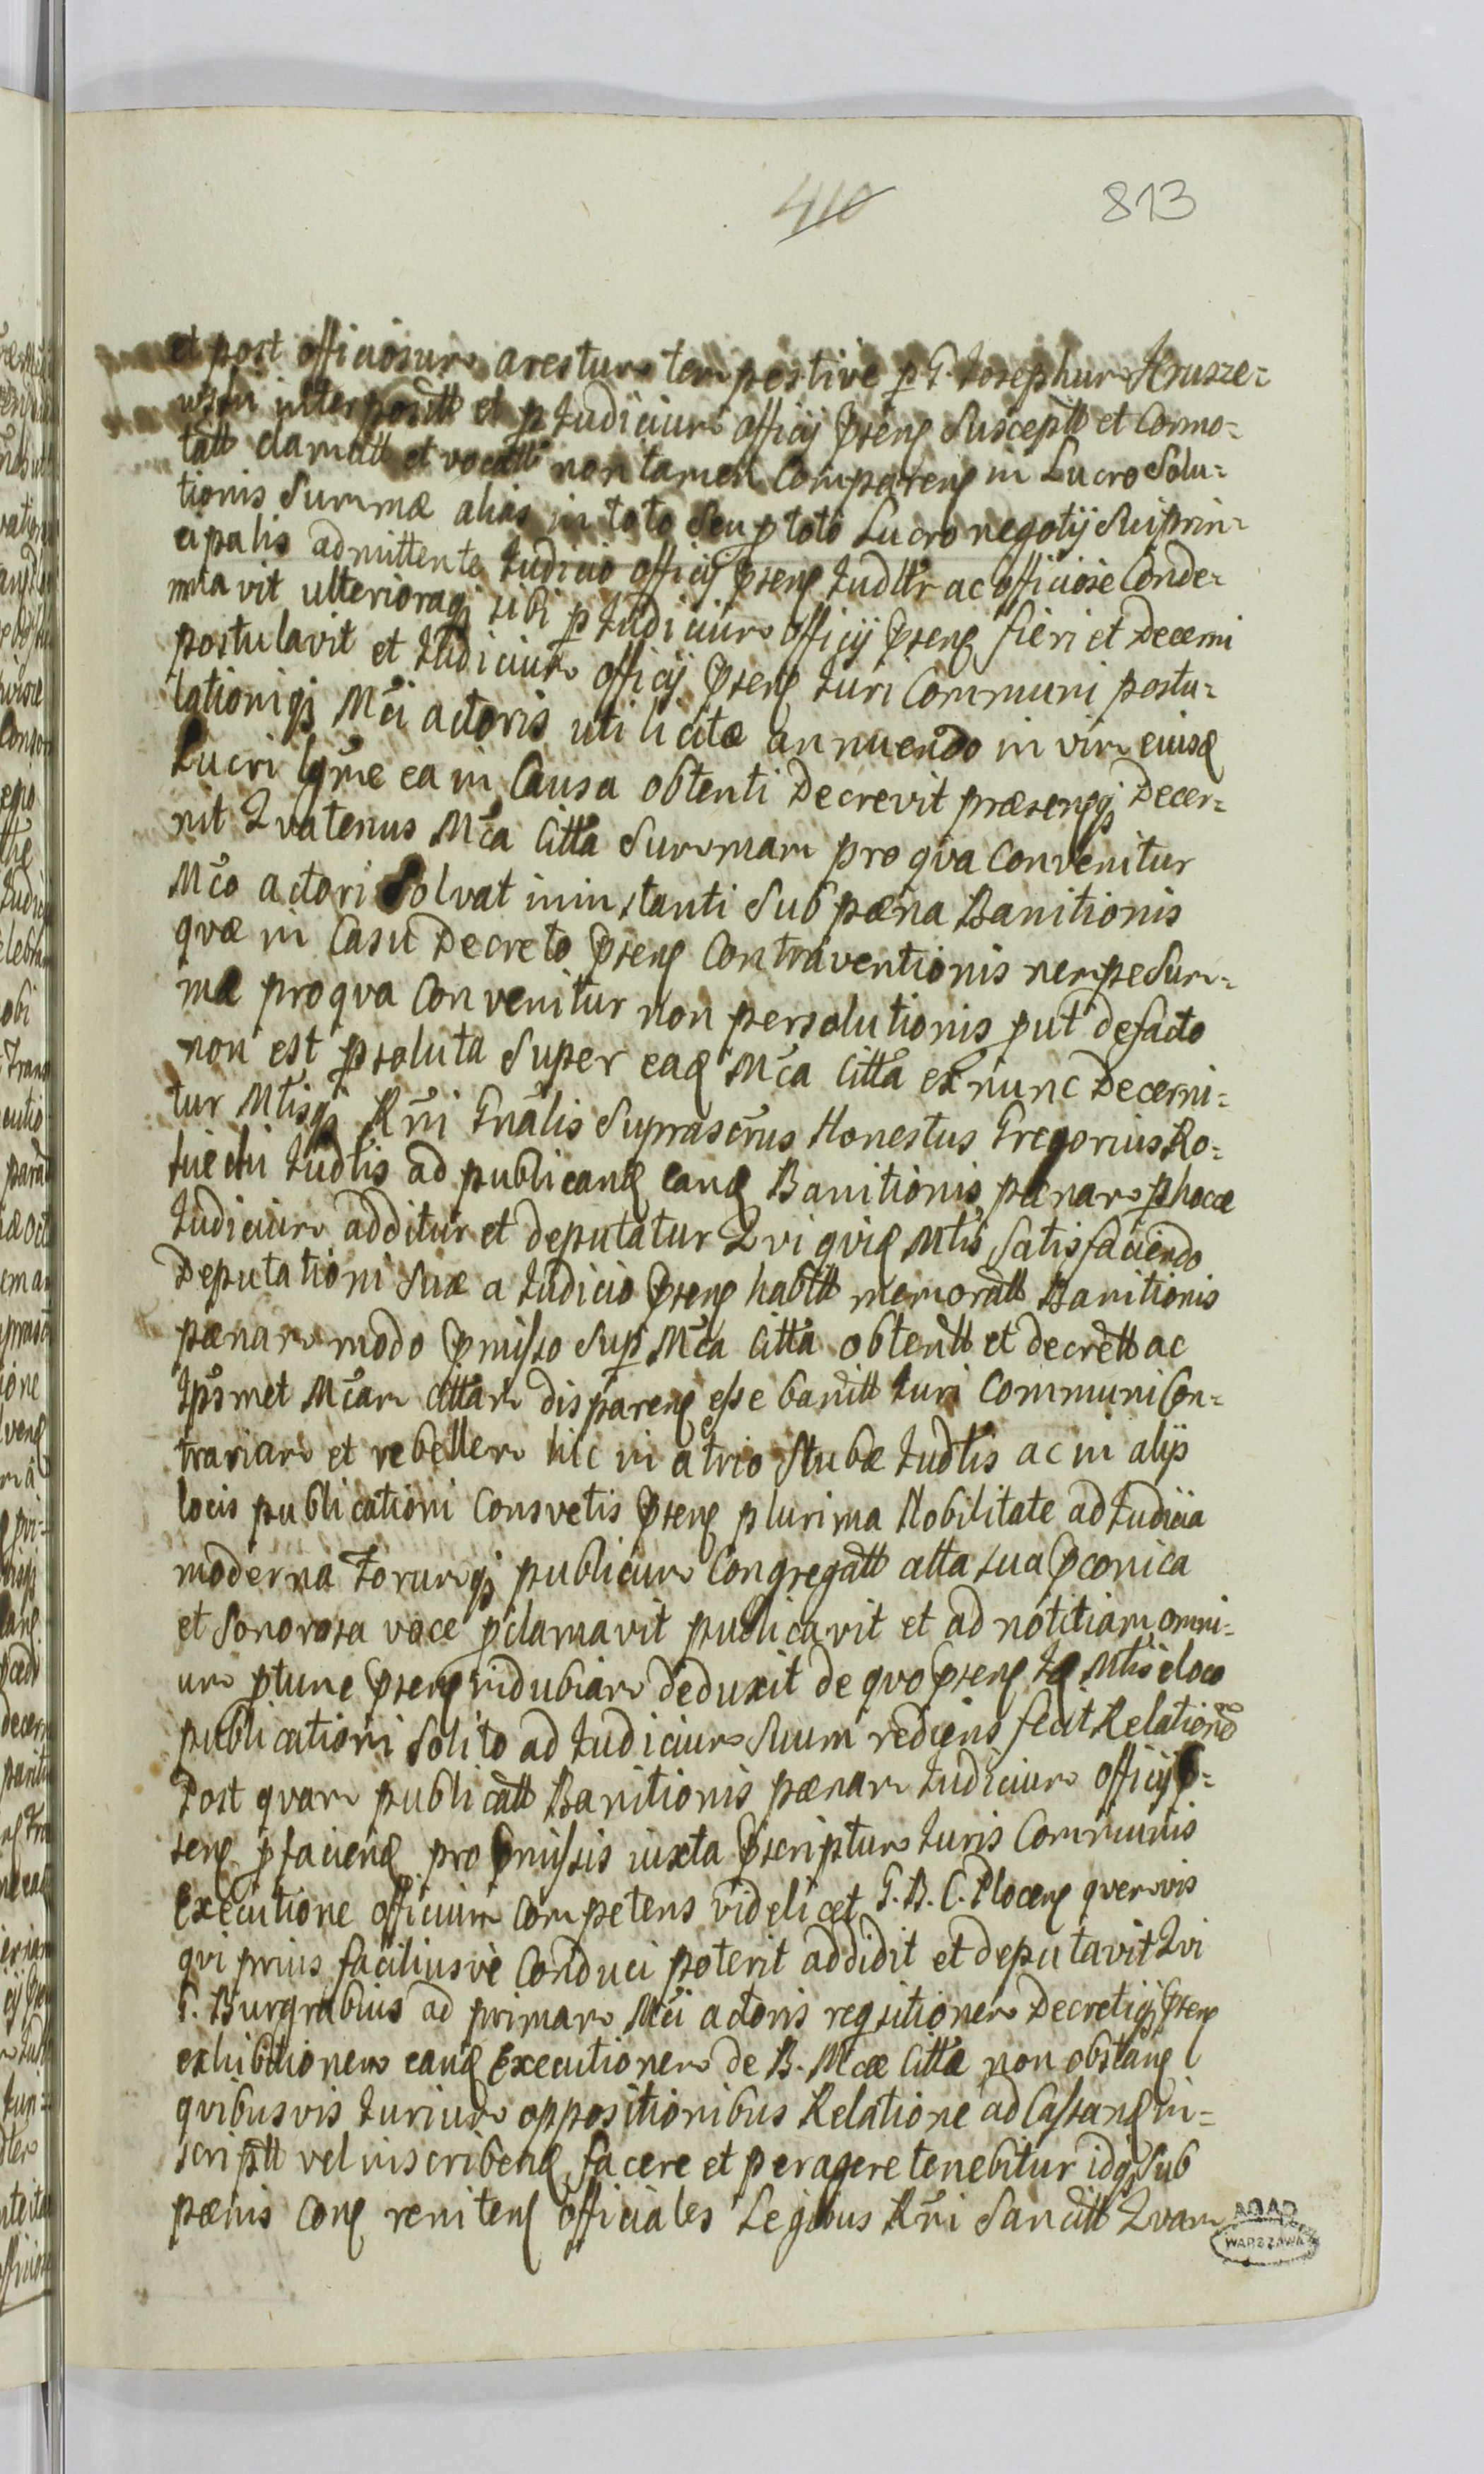 410
813
et post officiosum arestum tempestive p G. Josephum Hrusze=
wski interposit et p Judicium officij psens Suscept et Commo=
tatt clamatt et vocatt non tamen Comparens in Lucro Solu=
tionis Summæ alias in toto Seu p toto Lucro negotij Sui prin=
cipalis admittente Judicio officij psens Judltr ac officiose Conde=
mnavit ulterioraqj sibi p Judicium officij psens fieri et Decerni
postulavit et Judicium officij psens Juri Communi postu=
lationiqj Mci actoris uti licitæ annuendo in vim eiusd
Lucri lgme ea in Causa obtenti Decrevit præsensqj Decer=
nit Qvatenus Mca Citta Summam pro qva Convenitur
Mco actori Solvat in instanti Sub pæna Banitionis
qvæ in Casu Decreto psens Contraventionis nempe Sum=
mæ pro qva Convenitur non persolutionis put de facto
non est psoluta Super ead Mca Citta ex nunc Decerni=
tur Mtisqj Rni Gnalis Suprascrus Honestus Gregorius Ro=
Judlis ad publicand eand Banitionis pænam p hocce
Judicium additur et deputatur Qvi qvid Mtis Satisfaciendo
Deputationi Suæ a Judicio psens habitt memoratt Banitionis
pænam modo pmisso Sup Mca Citta obtentt et decrett ac
Ipsmet Mcam Cittam disparens esse banitt Juri Communi Con=
trariam et rebellem hic in atrio Stubæ Judlis ac in alijs
locis publicationi Consvetis psens plurima Nobilitate ad Judicia
moderna Forumqj publicum Congregatt alta sua pconica
et Sonorosa voce pclamavit publicavit et ad notitiam omni=
um ptunc psens indubiam deduxit de qvo psens Id Mtis e loco
publicationi Solito ad Judicium Suum rediens fecit Relationem
Post qvam publicatt Banitionis pænam Judicium officij p=
sens p faciend pro pmissis iuxta pscriptum Juris Communis
Executione officium Competens videlicet G. B. C. Plocens qvemvis
qvi prius faciliusve Conduci poterit addidit et deputavit Qvi
G. Burgrabius ad primam Mci actoris reqsitionem Decretiqj psens
exhibitionem eand Executionem de B. Mcæ Cittæ non obstans
qvibusvis Jurium oppositionibus Relatione ad Cassand in=
scriptt vel inscribend facere et peragere tenebitur idqj Sub
pænis Cons renitens officiales Legibus Rni Sancitt Qvam
AGAD
WARSZAWA